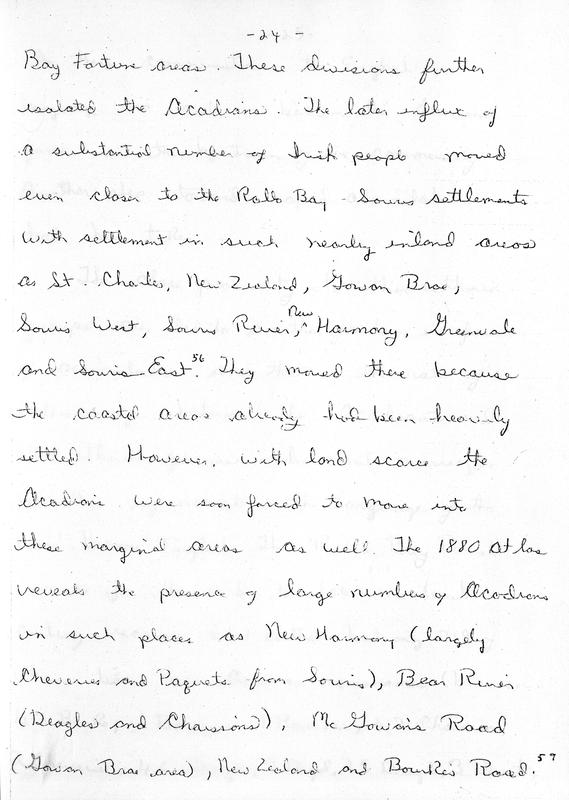 -24-
Bay Fortune areas. These divisions further
isolated the Acadians. The later influx of
a substantial number of Irish people moved
even closer to the Rollo Bay - Souris settlements
with settlement in such nearby inland areas
as St. Charles, New Zealand, Gowan Brae,
Souris West, Souris River, New Harmony, Greenvale
and Souris East.56 They moved there because
the coastal areas already had been heavily
settled. However, with land scarce the
Acadians were soon forced to move into
these marginal areas as well. The 1880 Atlas
reveals the presence of large numbers of Acadians
in such places as New Harmony (largely
Cheveries and Paquets from Souris), Bear River
(Deagles and Chaissons), McGowan's Road
(Gowan Brae area), New Zealand and Bourke's Road.57